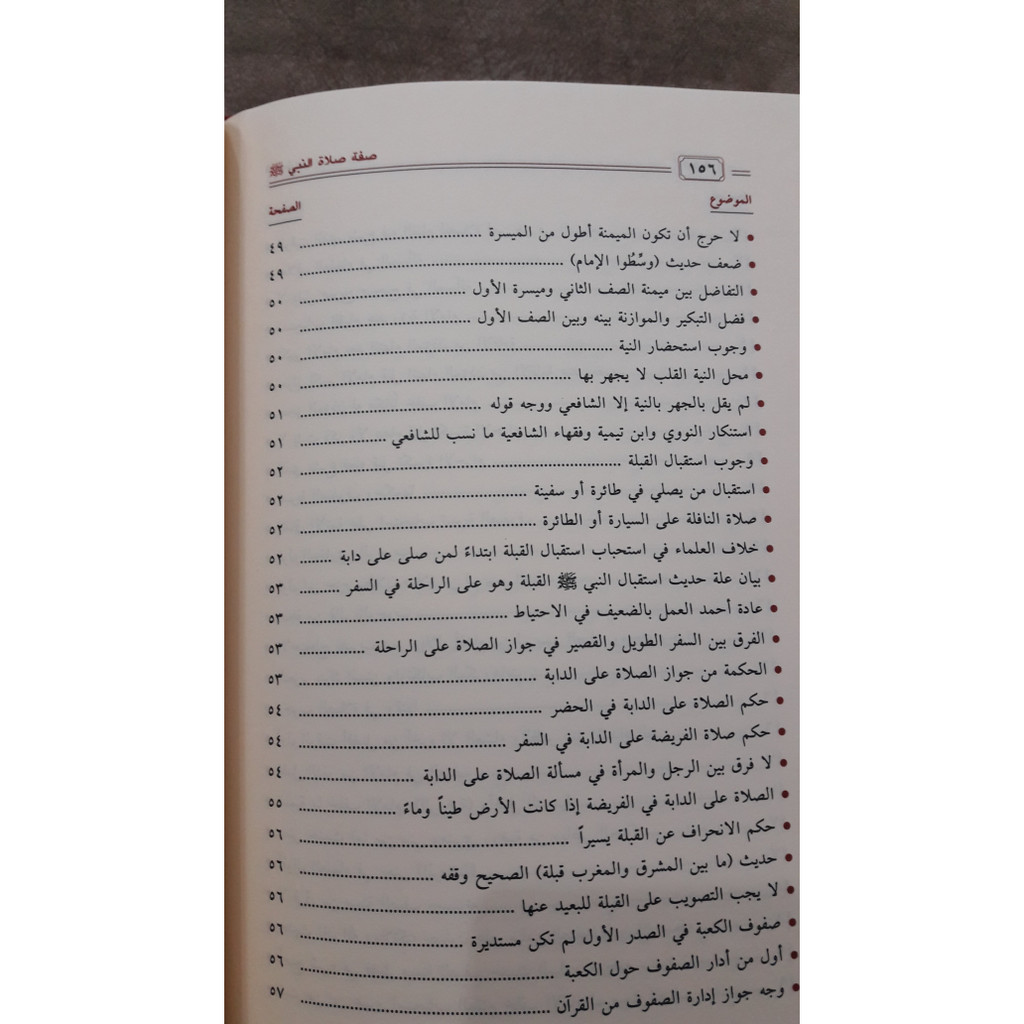 ١٥٦ صفة صلاة النبي ﷺ
الموضوع الصفحة
• لا حرج أن تكون الميمنة أطول من الميسرة ........ ٤٩
• ضعف حديث (وسِّطُوا الإمام) ........ ٤٩
• التفاضل بين ميمنة الصف الثاني وميسرة الأول ........ ٥٠
• فضل التبكير والموازنة بينه وبين الصف الأول ........ ٥٠
• وجوب استحضار النية ........ ٥٠
• محل النية القلب لا يجهر بها ........ ٥٠
• لم يقل بالجهر بالنية إلا الشافعي ووجه قوله ........ ٥١
• استنكار النووي وابن تيمية وفقهاء الشافعية ما نسب للشافعي ........ ٥١
• وجوب استقبال القبلة ........ ٥٢
• استقبال من يصلي في طائرة أو سفينة ........ ٥٢
• صلاة النافلة على السيارة أو الطائرة ........ ٥٢
• خلاف العلماء في استحباب استقبال القبلة ابتداءً لمن صلى على دابة ........ ٥٢
• بيان علة حديث استقبال النبي ﷺ القبلة وهو على الراحلة في السفر ........ ٥٣
• عادة أحمد العمل بالضعيف في الاحتياط ........ ٥٣
• الفرق بين السفر الطويل والقصير في جواز الصلاة على الراحلة ........ ٥٣
• الحكمة من جواز الصلاة على الدابة ........ ٥٣
• حكم الصلاة على الدابة في الحضر ........ ٥٤
• حكم صلاة الفريضة على الدابة في السفر ........ ٥٤
• لا فرق بين الرجل والمرأة في مسألة الصلاة على الدابة ........ ٥٤
• الصلاة على الدابة في الفريضة إذا كانت الأرض طيناً وماءً ........ ٥٥
• حكم الانحراف عن القبلة يسيراً ........ ٥٦
• حديث (ما بين المشرق والمغرب قبلة) الصحيح وقفه ........ ٥٦
• لا يجب التصويب على القبلة للبعيد عنها ........ ٥٦
• صفوف الكعبة في الصدر الأول لم تكن مستديرة ........ ٥٦
• أول من أدار الصفوف حول الكعبة ........ ٥٦
• وجه جواز إدارة الصفوف من القرآن ........ ٥٧